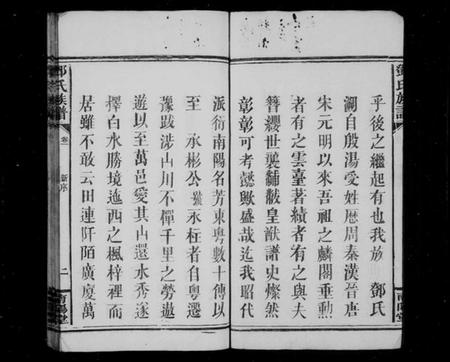 鄧氏族譜
乎後之繼起有也我 鄧氏
溯自殷湯受姓歷周秦漢晉唐
宋元明以來吾祖之麟閣垂勳
者有之雲臺著績者有之與夫
簪纓世襲黼黻皇猷譜史燦然
彰彰可考懿歟盛哉迄我昭代
南陽堂
派衍南陽名芳東粵數十傳以
至 永彬公暨永柱者自粵遷
豫跋涉山川不憚千里之勞遨
遊以至萬邑愛其山還水秀遂
擇白水勝境迤西之楓梓裡而
居雖不敢云田連阡陌廣廈萬
鄧氏族譜
卷一
新序
二
南陽堂